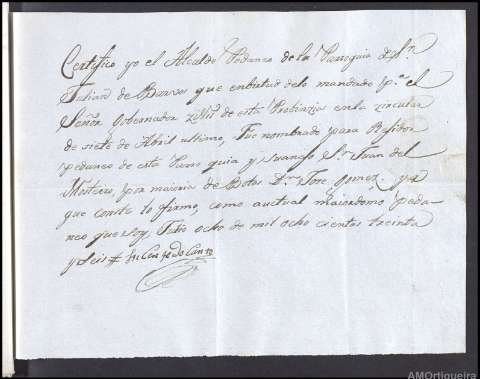 Certifico yo el Alcalde Pedaneo de la Parroquia de Sn
Julian de Barros que enbirtud delo mandado Pr el
Señor Gobernador zivil de esta Probinzia enla zircular
de siete de Abril ultimo, fue nombrado para Rejidor
pedaneo de esta Parroquia y Juan del
Mosteiro, por maioria de Botos Dn Jose Gomez. pa
que conste lo firmo, como auctual maiordomo peda-
neo que soy, Julio ocho de mil ocho cientos treinta
y Seis #
AMOrtigueira